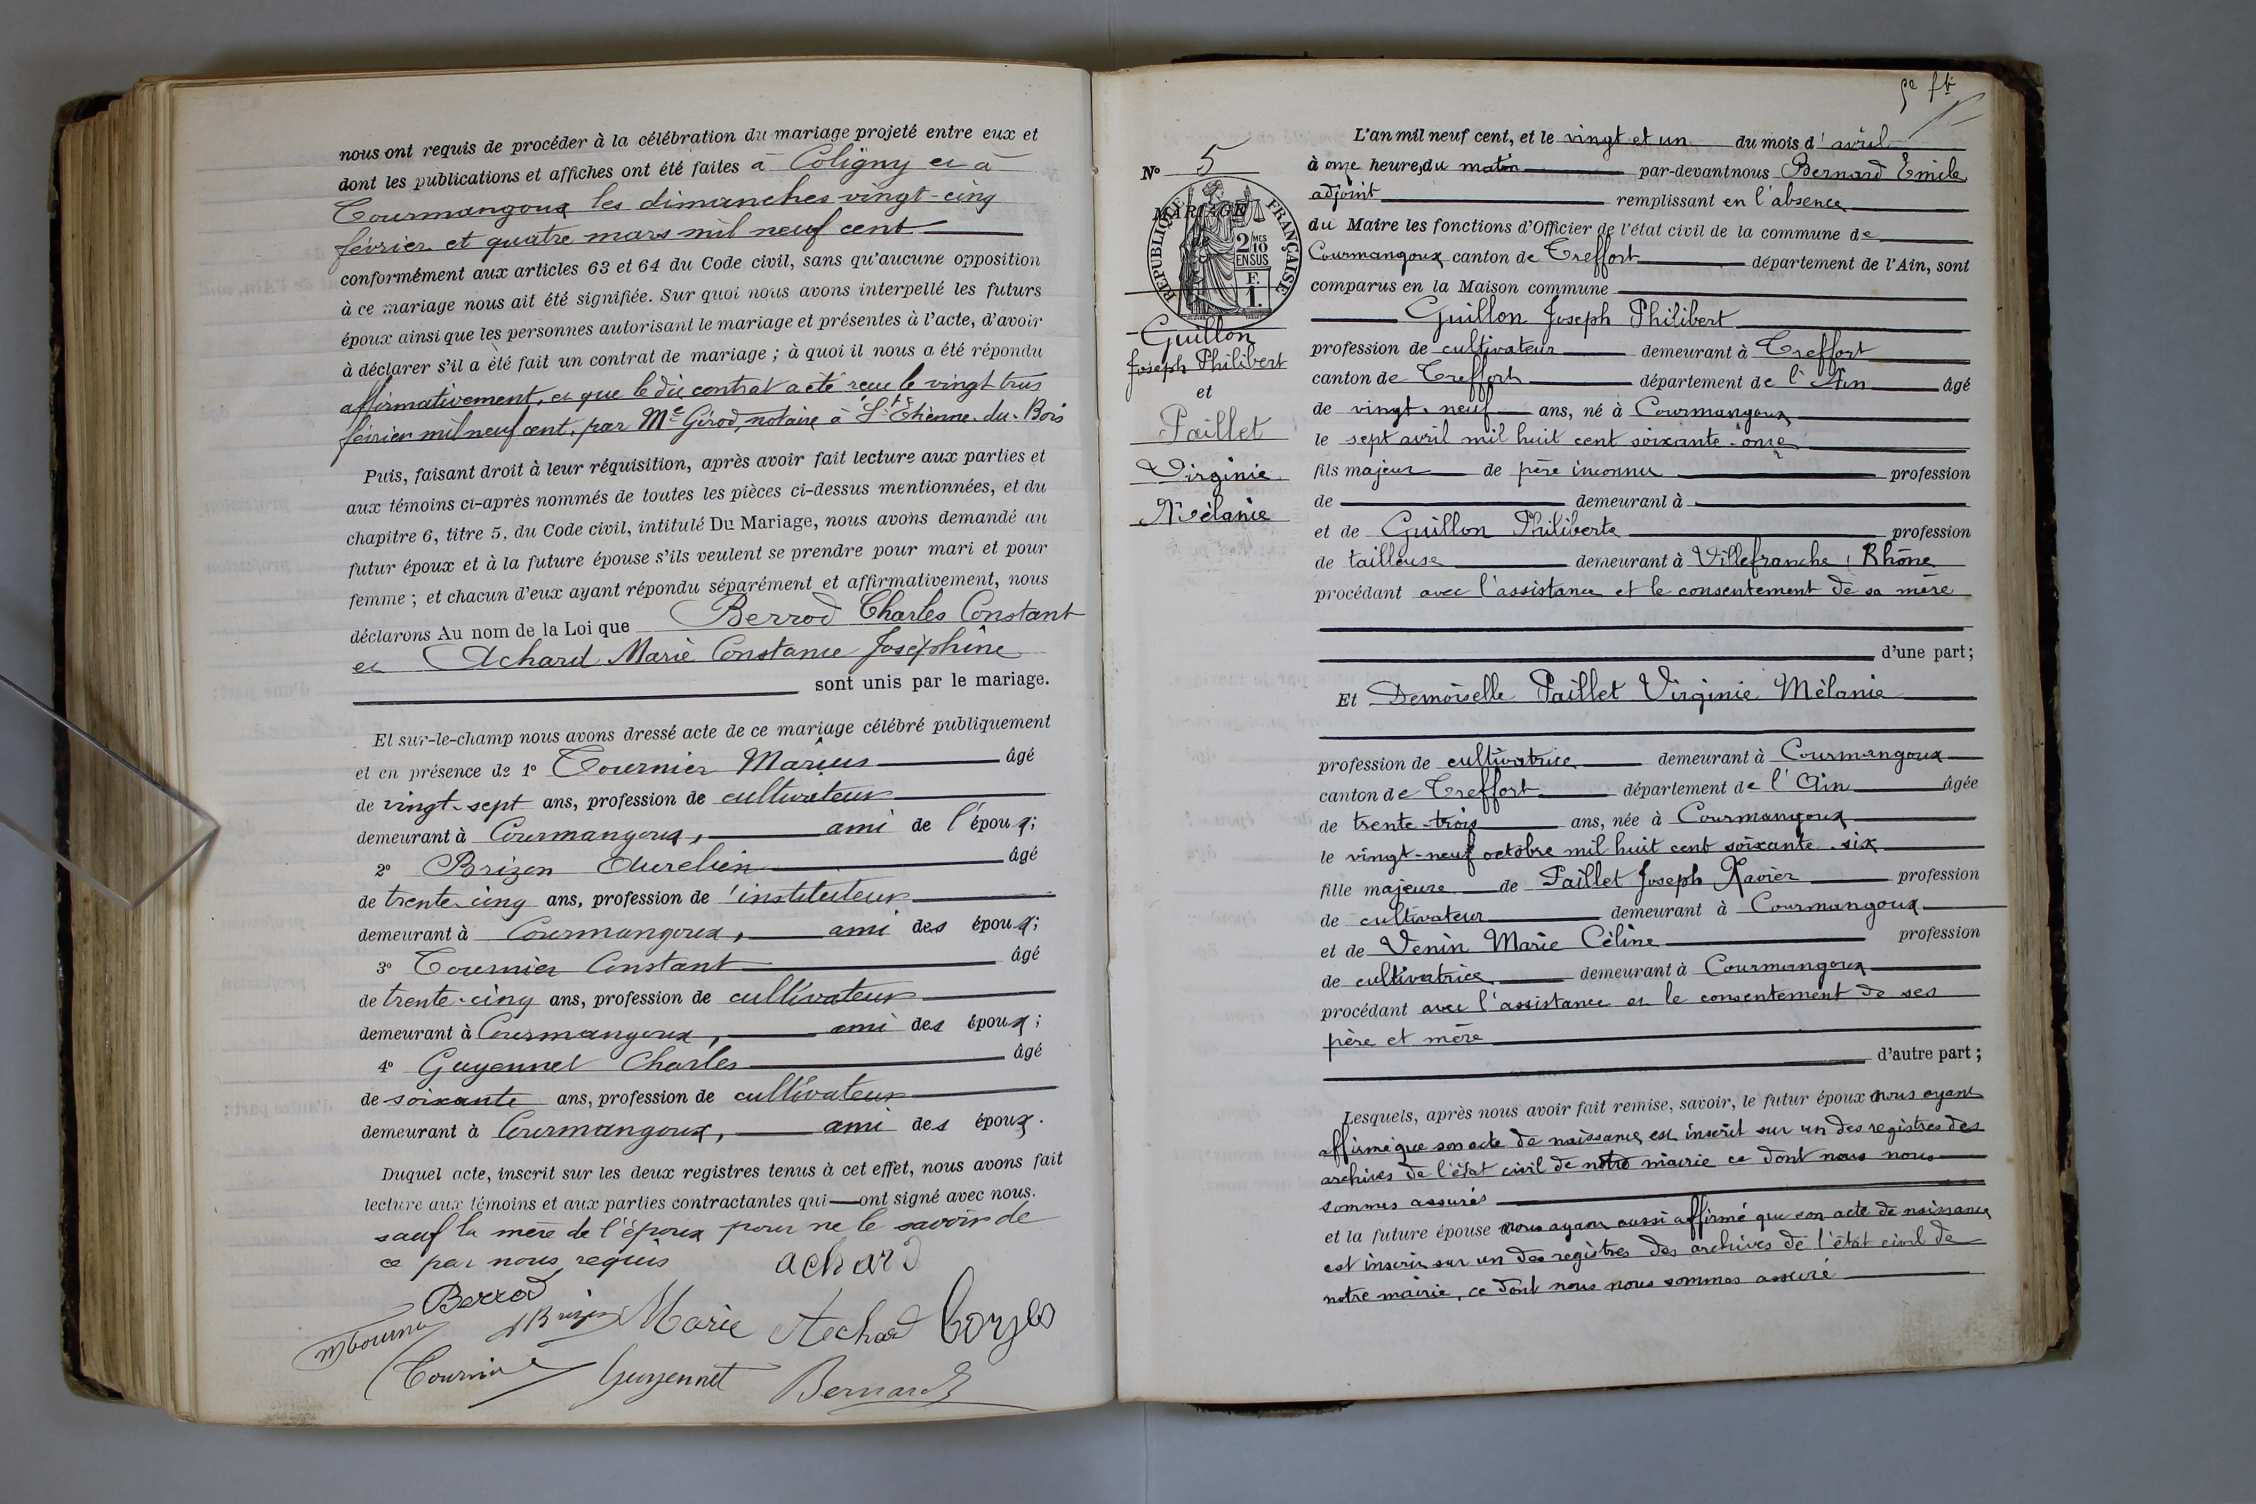 nous ont requis de procéder à la célébration du mariage projeté entre eux et
dont les publications et affiches ont été faites à Coligny et à
Courmangoux les dimanches vingt-cinq
février et quatre mars mil neuf cent
conformément aux articles 63 et 64 du Code civil, sans qu'aucune opposition
à ce mariage nous ait été signifiée. Sur quoi nous avons interpellé les futurs
époux ainsi que les personnes autorisant le mariage et présentes à l'acte, d'avoir
à déclarer s'il a été fait un contrat de mariage ; à quoi il nous a été répondu
affirmativement, et que le dit contrat a été reçu le vingt trois
février mil neuf cent, par Me Girod, notaire à St Etienne-du-Bois
Puis, faisant droit à leur réquisition, après avoir fait lecture aux parties et
aux témoins ci-après nommés de toutes les pièces ci-dessus mentionnées, et du
chapitre 6, titre 5, du Code civil, intitulé Du Mariage, nous avons demandé au
futur époux et à la future épouse s'ils veulent se prendre pour mari et pour
femme ; et chacun d'eux ayant répondu séparément et affirmativement, nous
déclarons Au nom de la Loi que Berrod Charles Constant
et Achard Marie Constance Joséphine
sont unis par le mariage.
Et sur-le-champ nous avons dressé acte de ce mariage célébré publiquement
et en présence de 1° Tournier Marius âgé
de vingt-sept ans, profession de cultivateur
demeurant à Courmangoux, ami de l'époux;
2° Brizon Aurélien âgé
de trente-cinq ans, profession de instituteur
demeurant à Courmangoux, ami des époux;
3° Tournier Constant âgé
de trente-cinq ans, profession de cultivateur
demeurant à Courmangoux, ami des époux;
4° Guyennet Charles âgé
de soixante ans, profession de cultivateur
demeurant à Courmangoux, ami des époux.
Duquel acte, inscrit sur les deux registres tenus à cet effet, nous avons fait
lecture aux témoins et aux parties contractantes qui ont signé avec nous.
sauf la mère de l'époux pour ne le savoir de
ce par nous requis achard
Berrod
Marie Achard
Guyennet Bernard
N° 5
MARIAGE
RÉPUBLIQUE FRANÇAISE
2 MES
10
EN SUS
F.
1.
Guillon
Joseph Philibert
et
Paillet
Virginie
Mélanie
L'an mil neuf cent, et le vingt et un du mois d'avril
à onze heures du matin par-devant nous Bernard Emile
adjoint remplissant en l'absence
du Maire les fonctions d'Officier de l'état civil de la commune de
Courmangoux canton de Treffort département de l'Ain, sont
comparus en la Maison commune
Guillon Joseph Philibert
profession de cultivateur demeurant à Treffort
canton de Treffort département de l'Ain âgé
de vingt-neuf ans, né à Courmangoux
le sept avril mil huit cent soixante-onze
fils majeur de père inconnu profession
de demeurant à
et de Guillon Philiberte profession
de tailleuse demeurant à Villefranche, Rhône
procédant avec l'assistance et le consentement de sa mère
d'une part;
Et Demoiselle Paillet Virginie Mélanie
profession de cultivatrice demeurant à Courmangoux
canton de Treffort département de l'Ain âgée
de trente-trois ans, née à Courmangoux
le vingt-neuf octobre mil huit cent soixante-six
fille majeure de Paillet Joseph Xavier profession
de cultivateur demeurant à Courmangoux
et de Venin Marie Céline profession
de cultivatrice demeurant à Courmangoux
procédant avec l'assistance et le consentement de ses
père et mère
d'autre part;
Lesquels, après nous avoir fait remise, savoir, le futur époux nous ayant
affirmé que son acte de naissance est inscrit sur un des registres des
archives de l'état civil de notre mairie ce dont nous nous
sommes assurés
et la future épouse nous ayant aussi affirmé que son acte de naissance
est inscrit sur un des registres des archives de l'état civil de
notre mairie, ce dont nous nous sommes assuré